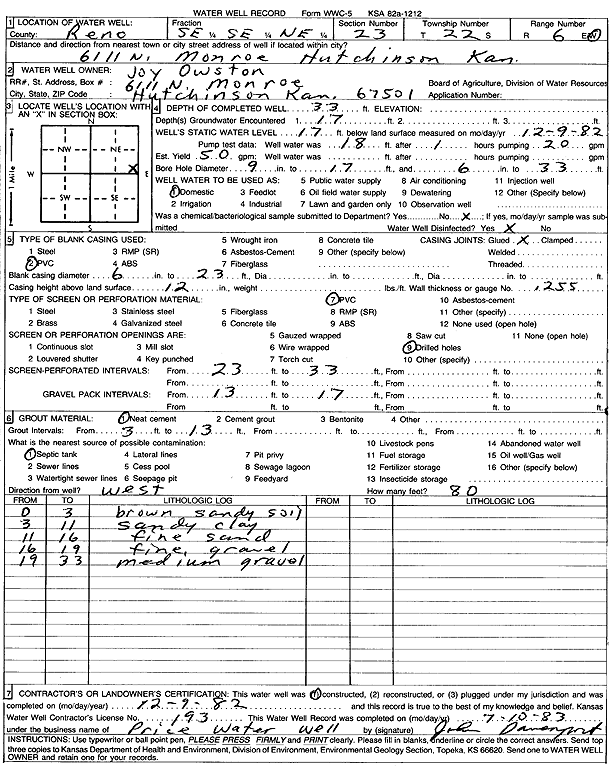 WATER WELL RECORD Form WWC-5 KSA 82a-1212
1 LOCATION OF WATER WELL: Fraction Section Number Township Number Range Number
County: Reno SE ¼ SE ¼ NE ¼ 23 T 22 S R 6 E/W
Distance and direction from nearest town or city street address of well if located within city?
6111 N. Monroe Hutchinson Kan.
2 WATER WELL OWNER: Joy Owston
RR#, St. Address, Box # : 6111 N. Monroe Board of Agriculture, Division of Water Resources
City, State, ZIP Code : Hutchinson Kan. 67501 Application Number:
3 LOCATE WELL'S LOCATION WITH AN "X" IN SECTION BOX:
N
NW NE
W X E
SW SE
S
1 Mile
4 DEPTH OF COMPLETED WELL 33 ft. ELEVATION:
Depth(s) Groundwater Encountered 1. 17 ft. 2. ft. 3. ft.
WELL'S STATIC WATER LEVEL 17 ft. below land surface measured on mo/day/yr 12-9-82
Pump test data: Well water was 18 ft. after 1 hours pumping 20 gpm
Est. Yield 50 gpm: Well water was ft. after hours pumping gpm
Bore Hole Diameter 9 in. to 17 ft., and 6 in. to 33 ft.
WELL WATER TO BE USED AS: 5 Public water supply 8 Air conditioning 11 Injection well
1 Domestic 3 Feedlot 6 Oil field water supply 9 Dewatering 12 Other (Specify below)
2 Irrigation 4 Industrial 7 Lawn and garden only 10 Observation well
Was a chemical/bacteriological sample submitted to Department? Yes No X; If yes, mo/day/yr sample was submitted Water Well Disinfected? Yes X No
5 TYPE OF BLANK CASING USED: 5 Wrought iron 8 Concrete tile CASING JOINTS: Glued X Clamped
1 Steel 3 RMP (SR) 6 Asbestos-Cement 9 Other (specify below) Welded
2 PVC 4 ABS 7 Fiberglass Threaded
Blank casing diameter 6 in. to 23 ft., Dia in. to ft., Dia in. to ft.
Casing height above land surface 12 in., weight lbs./ft. Wall thickness or gauge No. .255
TYPE OF SCREEN OR PERFORATION MATERIAL: 7 PVC 10 Asbestos-cement
1 Steel 3 Stainless steel 5 Fiberglass 8 RMP (SR) 11 Other (specify)
2 Brass 4 Galvanized steel 6 Concrete tile 9 ABS 12 None used (open hole)
SCREEN OR PERFORATION OPENINGS ARE: 5 Gauzed wrapped 8 Saw cut 11 None (open hole)
1 Continuous slot 3 Mill slot 6 Wire wrapped 9 Drilled holes
2 Louvered shutter 4 Key punched 7 Torch cut 10 Other (specify)
SCREEN-PERFORATED INTERVALS: From 23 ft. to 33 ft., From ft. to ft.
From ft. to ft., From ft. to ft.
GRAVEL PACK INTERVALS: From 13 ft. to 17 ft., From ft. to ft.
From ft. to ft., From ft. to ft.
6 GROUT MATERIAL: 1 Neat cement 2 Cement grout 3 Bentonite 4 Other
Grout Intervals: From 3 ft. to 13 ft., From ft. to ft., From ft. to ft.
What is the nearest source of possible contamination: 10 Livestock pens 14 Abandoned water well
1 Septic tank 4 Lateral lines 7 Pit privy 11 Fuel storage 15 Oil well/Gas well
2 Sewer lines 5 Cess pool 8 Sewage lagoon 12 Fertilizer storage 16 Other (specify below)
3 Watertight sewer lines 6 Seepage pit 9 Feedyard 13 Insecticide storage
Direction from well? West How many feet? 80
FROM TO LITHOLOGIC LOG FROM TO LITHOLOGIC LOG
0 3 brown sandy soil
3 11 sandy clay
11 16 fine sand
16 19 fine gravel
19 33 medium gravel
7 CONTRACTOR'S OR LANDOWNER'S CERTIFICATION: This water well was (1) constructed, (2) reconstructed, or (3) plugged under my jurisdiction and was
completed on (mo/day/year) 12-9-82 and this record is true to the best of my knowledge and belief. Kansas
Water Well Contractor's License No. 193 This Water Well Record was completed on (mo/day/yr) 7-10-83
under the business name of Price Water Well by (signature) John Davenport
INSTRUCTIONS: Use typewriter or ball point pen, PLEASE PRESS FIRMLY and PRINT clearly. Please fill in blanks, underline or circle the correct answers. Send top
three copies to Kansas Department of Health and Environment, Division of Environment, Environmental Geology Section, Topeka, KS 66620. Send one to WATER WELL
OWNER and retain one for your records.